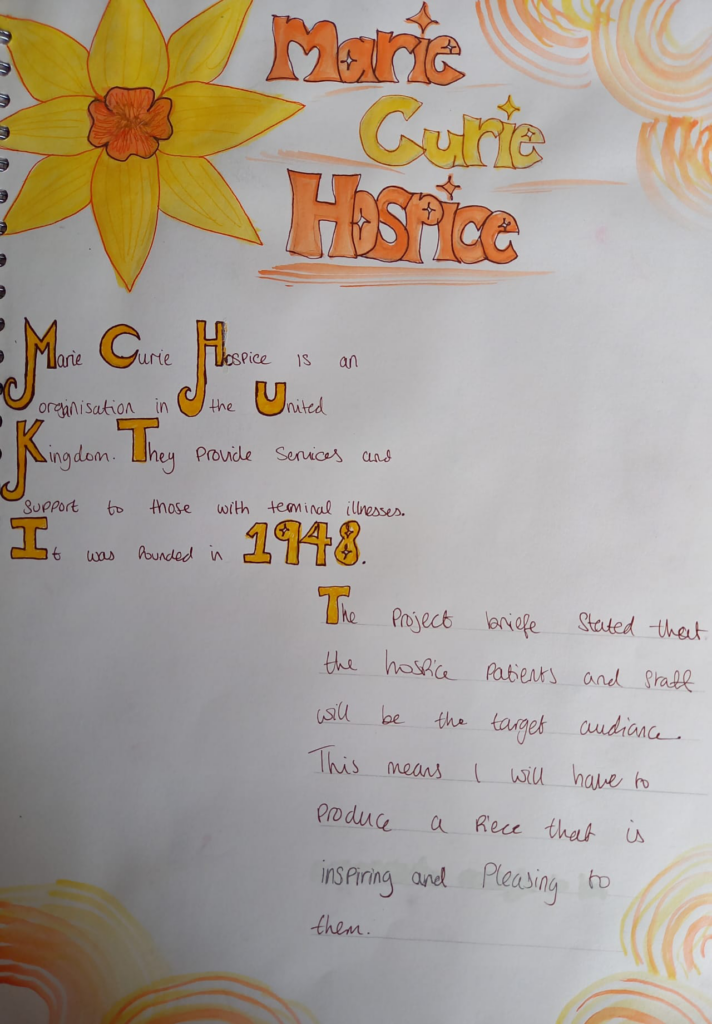 Marie
Curie
Hospice
Marie Curie Hospice is an
organisation in the United
Kingdom. They provide services and
support to those with terminal illnesses.
It was founded in 1948.
The project briefe stated that
the hospice patients and staff
will be the target audiance.
This means I will have to
produce a piece that is
inspiring and pleasing to
them.